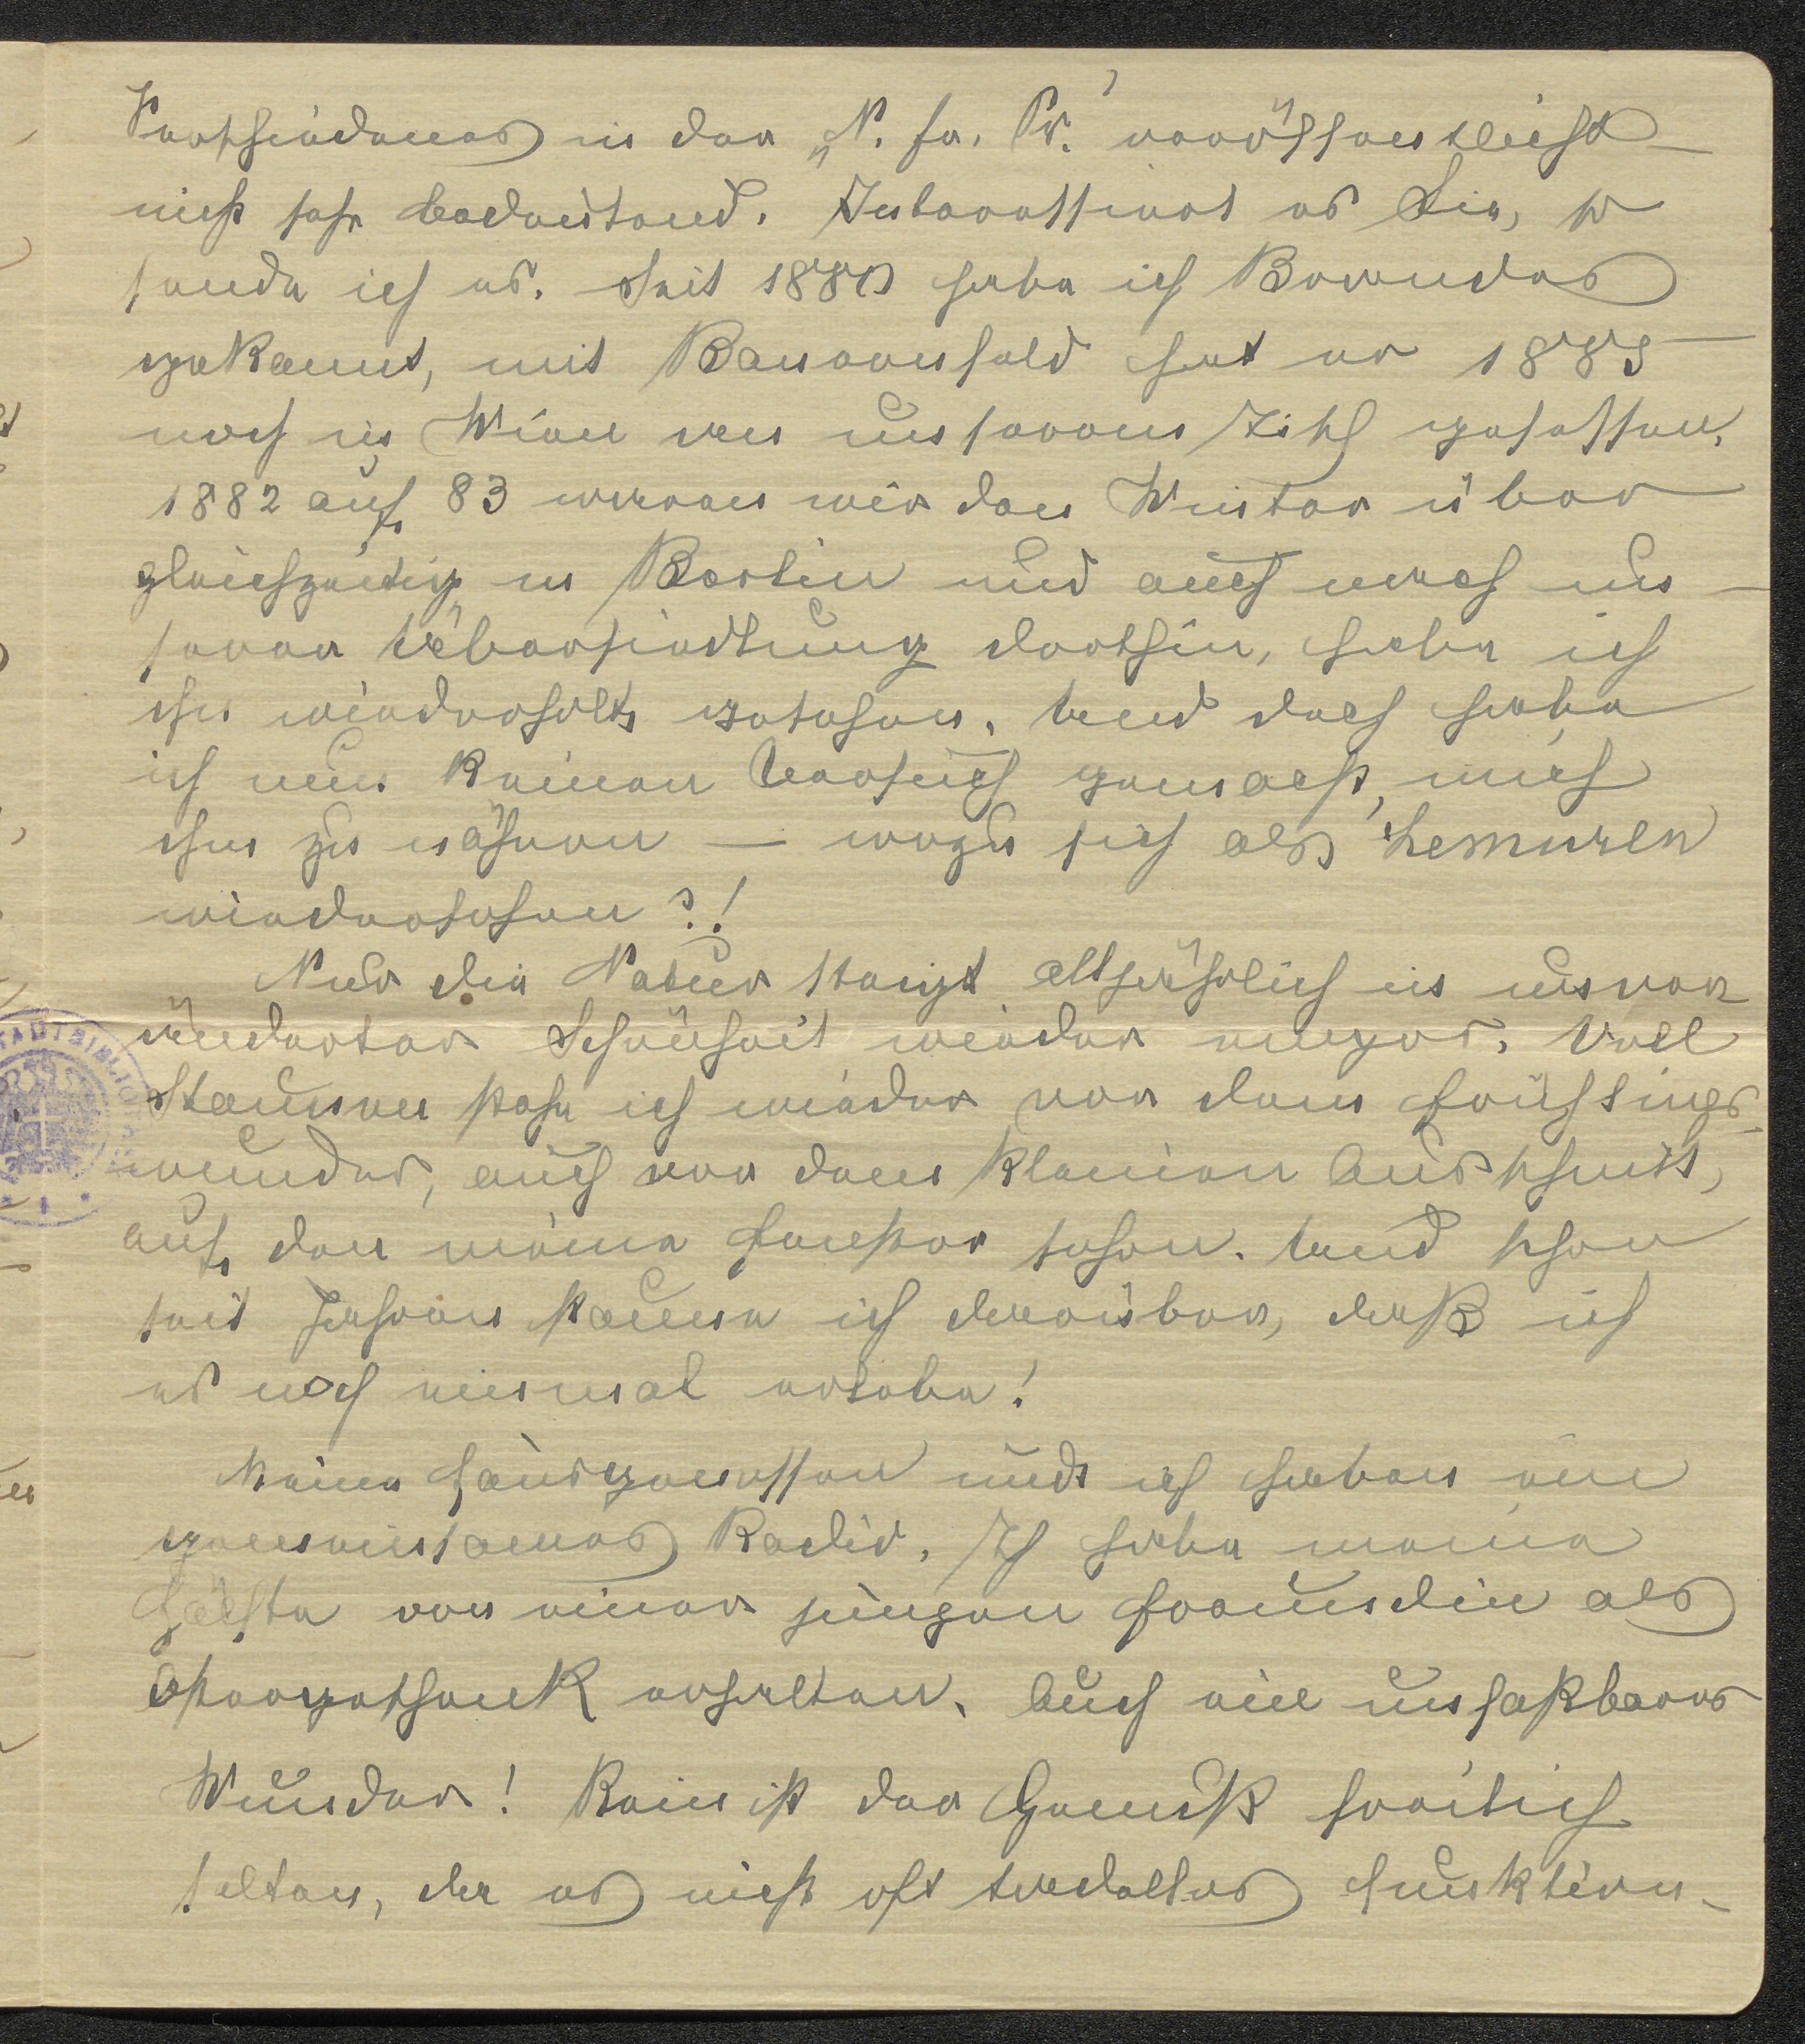 Verschiedenes in der „N. fr. Pr.“ veröffentlicht –
nicht sehr bedeutend. Interessirt es Sie, so
sende ich es. Seit 1880 habe ich Brandes
gekannt, mit Bauernfeld hat er 1885
noch in Wien an unserem Tisch gesessen.
1882 auf 83 waren wir den Winter über
gleichzeitig in Berlin und auch nach un-
serer Übersiedlung dorthin, habe ich
ihn wiederholt gesehen. Und doch habe
ich nun keinen Versuch gemacht, mich
ihm zu nähern – wozu sich als Lemuren
wiedersehen?!
Nur die Natur steigt alljährlich in unver-
änderter Schönheit wieder empor. Voll
Staunen stehe ich wieder vor dem Frühlings-
wunder, auch vor dem kleinen Ausschnitt,
auf den meine Fenster sehen. Und schon
seit Jahren staune ich darüber, daß ich
es noch einmal erlebe!
Meine Hausgenossen und ich haben ein
gemeinsames Radio. Ich habe meine
Hälfte von einer jungen Freundin als
Ostergeschenk erhalten. Auch ein unfaßbares
Wunder! Rein ist der Genuß freilich
selten, da es nicht oft tadellos funktion-